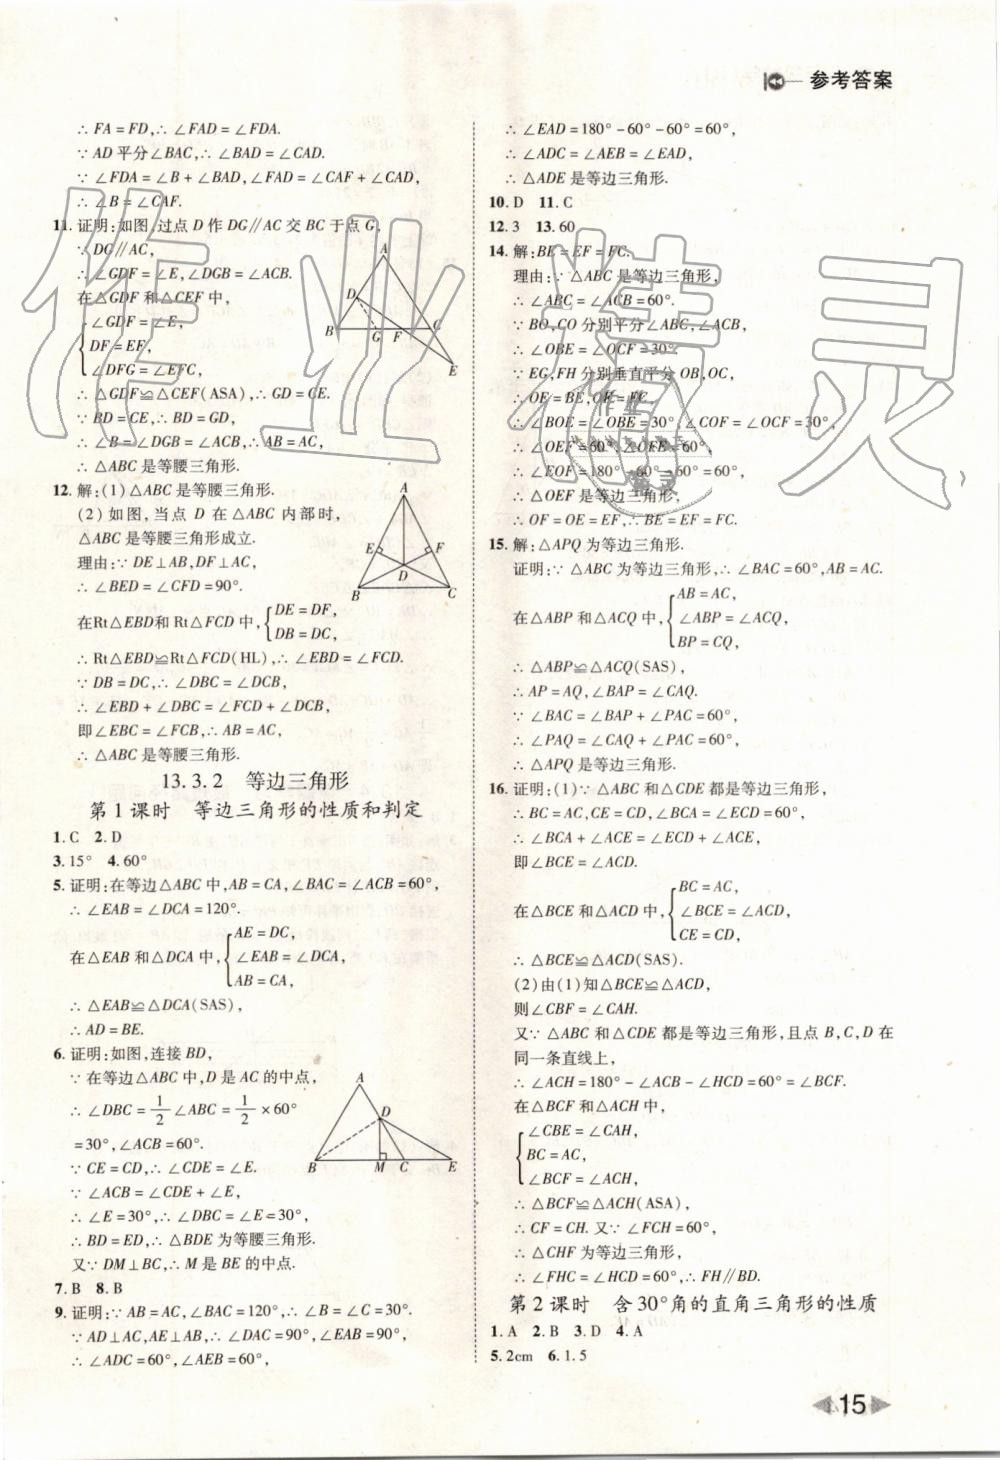 参考答案
∴FA=FD,∴∠FAD=∠FDA.
∵AD平分∠BAC,∴∠BAD=∠CAD.
∵∠FDA=∠B+∠BAD,∠FAD=∠CAF+∠CAD,
∴∠B=∠CAF.
11.证明:如图,过点D作DG∥AC交BC于点G,
∵DG∥AC,
∴∠GDF=∠E,∠DGB=∠ACB.
在△GDF和△CEF中,
∠GDF=∠E,
DF=EF,
∠DFG=∠EFC,
∴△GDF≌△CEF(ASA),∴GD=CE.
∵BD=CE,∴BD=GD,
∴∠B=∠DGB=∠ACB,∴AB=AC,
∴△ABC是等腰三角形.
A
D
B
G
F
C
E
12.解:(1)△ABC是等腰三角形.
(2)如图,当点D在△ABC内部时,
△ABC是等腰三角形成立.
理由:∵DE⊥AB,DF⊥AC,
∴∠BED=∠CFD=90°.
在Rt△EBD和Rt△FCD中,{DE=DF,
DB=DC,
∴Rt△EBD≌Rt△FCD(HL),∴∠EBD=∠FCD.
∵DB=DC,∴∠DBC=∠DCB,
∴∠EBD+∠DBC=∠FCD+∠DCB,
即∠EBC=∠FCB,∴AB=AC,
∴△ABC是等腰三角形.
A
E
F
D
B
C
13.3.2 等边三角形
第1课时 等边三角形的性质和判定
1.C 2.D
3.15° 4.60°
5.证明:在等边△ABC中,AB=CA,∠BAC=∠ACB=60°,
∴∠EAB=∠DCA=120°.
在△EAB和△DCA中,{AE=DC,
∠EAB=∠DCA,
AB=CA,
∴△EAB≌△DCA(SAS),
∴AD=BE.
6.证明:如图,连接BD,
∵在等边△ABC中,D是AC的中点,
∴∠DBC=1/2∠ABC=1/2×60°
=30°,∠ACB=60°.
∵CE=CD,∴∠CDE=∠E.
∵∠ACB=∠CDE+∠E,
∴∠E=30°,∴∠DBC=∠E=30°,
∴BD=ED,∴△BDE为等腰三角形.
又∵DM⊥BC,∴M是BE的中点.
A
D
B
M
C
E
7.B 8.B
9.证明:∵AB=AC,∠BAC=120°,∴∠B=∠C=30°.
∵AD⊥AC,AE⊥AB,∴∠DAC=90°,∠EAB=90°,
∴∠ADC=60°,∠AEB=60°,
∴∠EAD=180°-60°-60°=60°,
∴∠ADC=∠AEB=∠EAD,
∴△ADE是等边三角形.
10.D 11.C
12.3 13.60
14.解:BE=EF=FC.
理由:∵△ABC是等边三角形,
∴∠ABC=∠ACB=60°.
∵BO,CO分别平分∠ABC,∠ACB,
∴∠OBE=∠OCF=30°.
∵EG,FH分别垂直平分OB,OC,
∴OE=BE,OF=FC.
∴∠BOE=∠OBE=30°,∠COF=∠OCF=30°,
∴∠OEF=60°,∠OFE=60°,
∴∠EOF=180°-60°-60°=60°,
∴△OEF是等边三角形,
∴OF=OE=EF,∴BE=EF=FC.
15.解:△APQ为等边三角形.
证明:∵△ABC为等边三角形,∴∠BAC=60°,AB=AC.
在△ABP和△ACQ中,{AB=AC,
∠ABP=∠ACQ,
BP=CQ,
∴△ABP≌△ACQ(SAS),
∴AP=AQ,∠BAP=∠CAQ.
∵∠BAC=∠BAP+∠PAC=60°,
∴∠PAQ=∠CAQ+∠PAC=60°,
∴△APQ是等边三角形.
16.证明:(1)∵△ABC和△CDE都是等边三角形,
∴BC=AC,CE=CD,∠BCA=∠ECD=60°,
∴∠BCA+∠ACE=∠ECD+∠ACE,
即∠BCE=∠ACD.
在△BCE和△ACD中,{BC=AC,
∠BCE=∠ACD,
CE=CD,
∴△BCE≌△ACD(SAS).
(2)由(1)知△BCE≌△ACD,
则∠CBF=∠CAH.
又∵△ABC和△CDE都是等边三角形,且点B,C,D在
同一条直线上,
∴∠ACH=180°-∠ACB-∠HCD=60°=∠BCF.
在△BCF和△ACH中,
{∠CBE=∠CAH,
BC=AC,
∠BCF=∠ACH,
∴△BCF≌△ACH(ASA),
∴CF=CH.又∵∠FCH=60°,
∴△CHF为等边三角形,
∴∠FHC=∠HCD=60°,∴FH∥BD.
第2课时 含30°角的直角三角形的性质
1.A 2.B 3.D 4.A
5.2cm 6.1.5
15
作业精灵